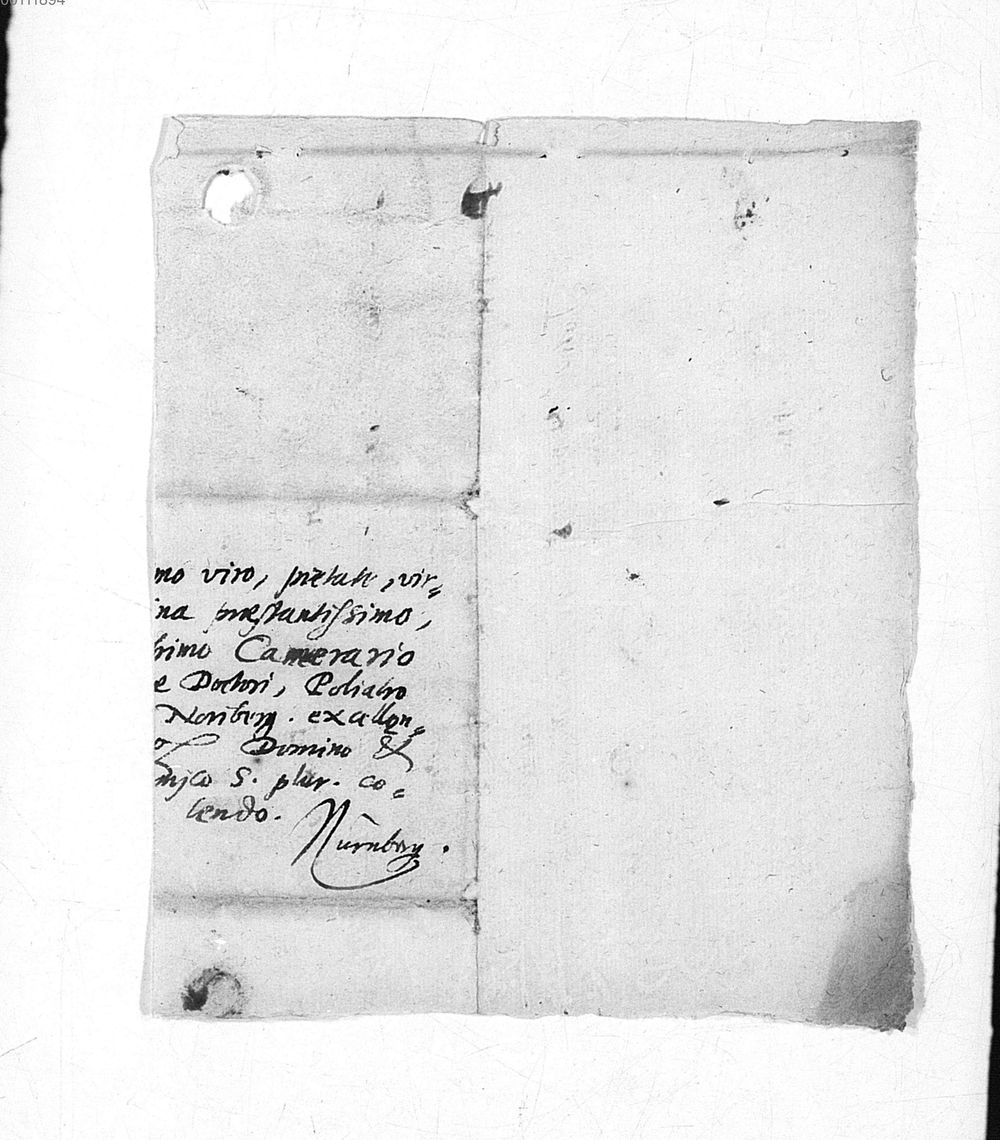 00111894
mo viro, pietate, vir=
ina præstantissimo,
himo Camerario
e Doctori, Poliatro
Noriberg. excellen=
Domino &
mico S. plur. co=
lendo.
Nürnberg.